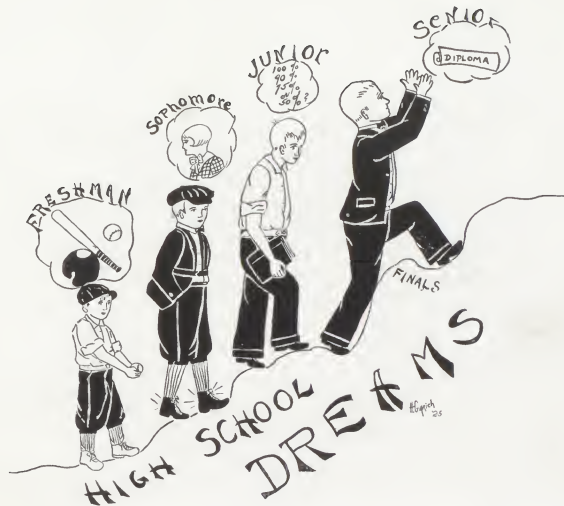 FRESHMAN
Sophomore
JUNIOR
100%
90%
75%
or
50%?
SENIOR
DIPLOMA
FINALS
HIGH SCHOOL
DREAMS
'25